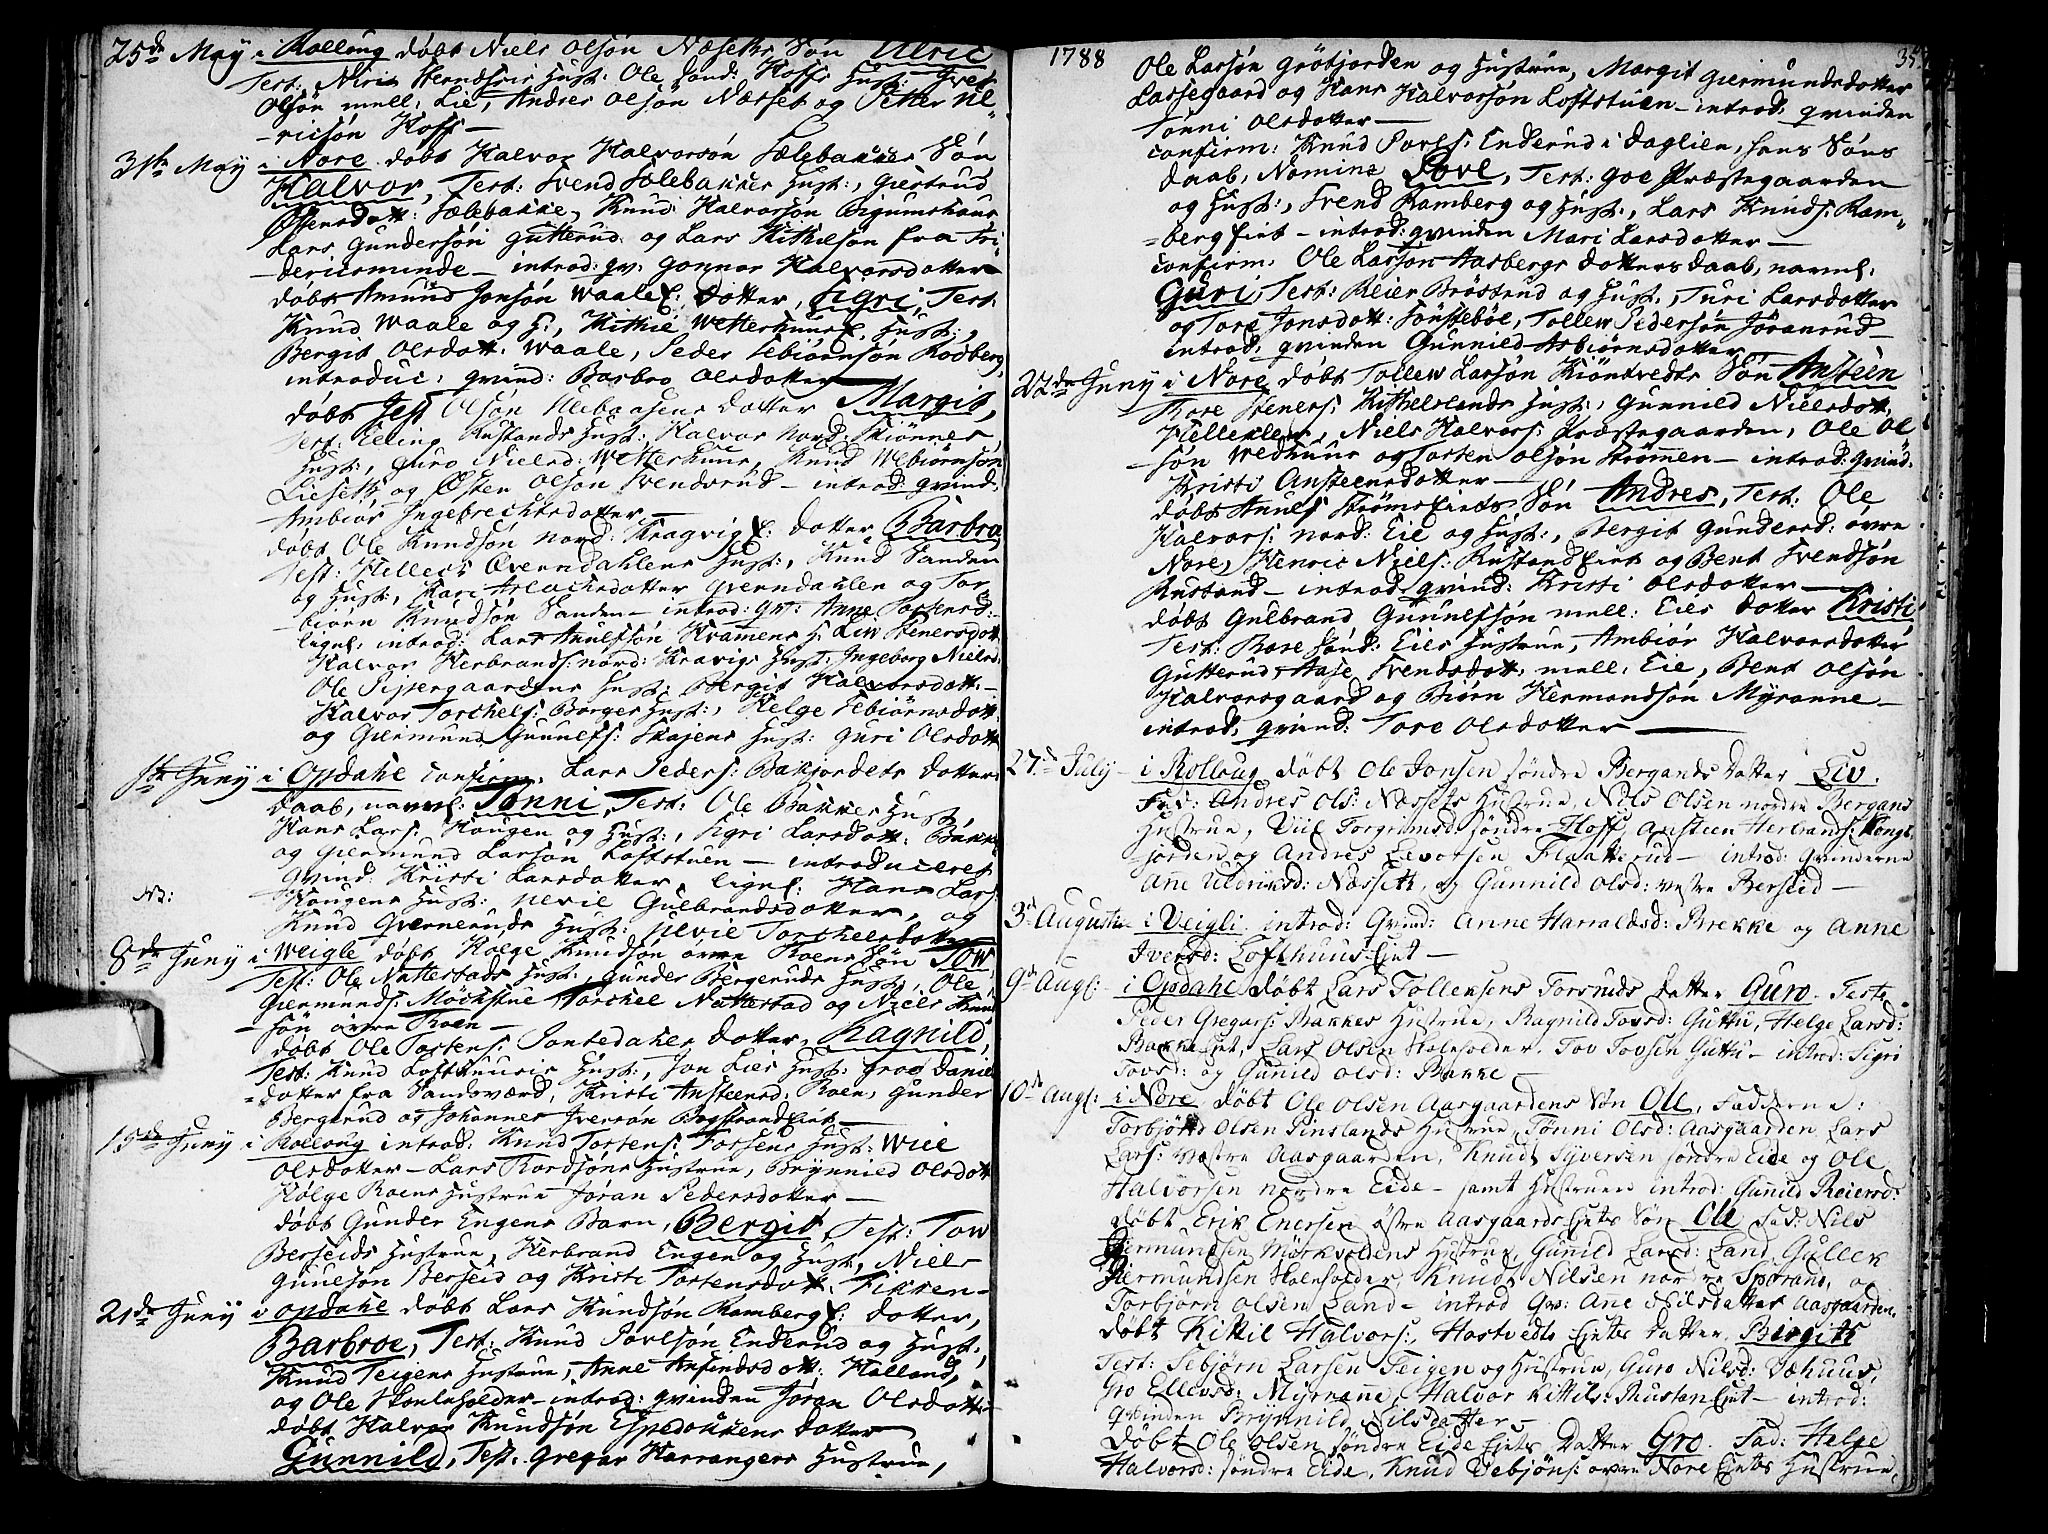 25de May i Rolloug døbt Niels Olsøn Næsets Søn Ulric
Test: Olsøn mell: Lie, Andres Olsøn Næset og Petter Ul-
-ricsøn Hoff-
31te May i Nore døbt Halvor Halvorsøn Sølebakkes Søn
Halvor, Test: Svend Sølebakkes Hust:, Giertrud
Sølebakke, Knud Halvorsøn Bigumshaur
Lars Gundersøn Gutterud og Lars Kittilsøn fra Fri-
-dericsminde- introd: gv: Gonnor Halvorsdotter
døbt Amund Jonsøn Waale: Dotter, Sigri, Test:
Knud Waale og H:, Kittil Wetterhuus: Hust:,
Bergit Olsdott: Waale, Peder Sebiørnsøn Rodberg,
introduc: gvind: Barbro Olsdotter
døbt Olsøn Dotter Margit,
Test: Elling Rustands Hust:, Halvor Nord: Skiønnes
Hust:, Guro Nielsd: Wetterhuus, Knud Webiørnsøn
Lieseth og Østen Olsøn Svendsrud- introd: gvind:
Ambiør Ingebrechtsdotter-
døbt Ole Knudsøn nord: Kragvig: Dotter Barbro,
Test: Helleck Øverndahlens Hust:, Knud Sanden
og Hust:, Kari Aslachsdotter Øverndahlen og Tor-
biørn Knudsøn Sanden- introd: gv: Anne Tostensd:
lign: introd: Lars Anulfsøn Kramens H: Liv Stenersdott:
Halvor Herbrands: nord: Kravigs Hust: Ingeborg Nielsd:
Ole Pipergaardens Hust: Bergit Halvorsdott:-
Halvor Torchels: Borges Hust:, Helge Sebiørnsdott:
og Giermund Gunulfs: Skajens Hust: Guri Olsdott:
1te Juny i Opdahl confirm: Lars Peders: Bakjordets Dotters
daab, navnl: Tønni, Test: Ole Bakkes Hust:
Hans Lars: Haugen og Hust:, Sigri Larsdott: Bakke
og Giermund Larsøn Loftstuen- introduceret
Gvind: Kristi Larsdotter lignl: Hans Lars:
NB: Haugens Hust: Nevie Gulbrandsdotter, og
Knud Gvernerunds Hust: Nevie Torchelsdotter
8de Juny i Weigle døbt Helge Knudsøn øvre Roens Søn Tow,
Test: Ole Nattestads Hust:, Gunder Bergeruds Hust:, Ole
Giermunds: Möchstue, Torchel Nattestad og Niels Knud-
-søn øvre Roen-
døbt Ole Tostens: Jontedalen Dotter, Ragnild,
Test: Knud Lofthuuses Hust:, Jon Lies Hust: Groe Daniels-
=dotter fra Sandsværd, Kristi Ansteensd: Roen, Gunder
Bergerud og Johannes Iversøn Bogstrandeiet-
15de Juny i Rolloug introd: Knud Tostens: Fossens Hust: Wiel
Olsdotter- Lars Hustrue, Brynnild Olsdott:
Helge Roens Hustrue Jøran Pedersdotter-
døbt Gunder Engens Barn, Bergit Test: Tow
Berseids Hustrue, Herbrand Engen og Hust:, Niels
Gunelsøn Berseid og Kristi Tostensdott: Fikken-
21de Juny i Opdahl døbt Lars Knudsøn Rambergs: Dotter,
Barbroe, Test: Knud Povlsøn Enderud og Hust:,
Knud Teigens Hustrue, Anne Anfindsdott: Holland,
og Ole Skouleholder- introd: gvinden Jøran Olsdotter
døbt Halvor Knudsøn Espedokkens Dotter
Gunnild, Test: Gregar Harrangers Hustrue,
1788
35
Ole Larsøn Grøtjorden og Hustrue, Margit Giermundsdotter
Lassegaard og Hans Halvorsøn Loftstuen- introd: gvinden
Tønni Olsdotter-
confirm: Knud Povls: Enderud i Daglien, hans Søns
daab, Nomine Povl, Test: Goe Præstegaarden
og Hust:, Svend Ramberg og Hust:, Lars Knuds: Ram-
=berg Eiet- introd: gvinden Mari Larsdotter-
confirm: Ole Larsøn Aasbergs Dotters daab, navnl:
Guri, Test: Reier Brøstrud og Hust:, Turi Larsdotter
og Tore Jonsdott: Sønstebøe, Tollew Pedersøn Jøranrud
introd: gvinden Gunnild Asbiørnsdotter-
22de Juny i Nore døbt Tollew Larsøn Kiøntvedts Søn Ansteen
Tore Steners: Kittelslands Hust:, Gunnild Nielsdott:
Helleklew, Niels Halvors: Præstegaarden, Ole Ol-
-søn Wedhuus og Tosten Olsøn Strømen- introd: gvind:
Kristi Ansteensdotter-
døbt Anuls Strømseiets Søn Andres, Test: Ole
Halvors: nord: Eie og Hust:, Bergit Gundersd: øvre
Nore, Henric Niels: Rustand Eiet og Bent Svendsøn
Rustand- introd: gvind: Kristi Olsdotter-
døbt Gulbrand Gunulfsøn mell: Eies Dotter Kristi
Test: Bore Sønd: Eies Hustrue, Ambiør Halvorsdotter
Gutterud, Aase Svendsdott: mell: Eie, Bent Olsøn
Halvorsgaard og Biørn Hermandsøn Myranne-
introd: gvind: Tore Olsdotter-
27de July- i Rolloug døbt Ole Jonsen søndre Bergands Datter Liv.
Fad: Andres Ols: Næssets Hustrue, Nils Olsen nordre Bergans
Hustrue, Viil Torgrimsd: søndre Hoff, Ansteen Herbrands: Kongs-
jorden og Andres Levorsen Fladterud- introd: Gvinderne
Ane Ulriksd: Næsseth, og Gunnild Olsd: vestre Berseid-
3de Augusti i Veigli introd: Gvind: Anne Harraldsd: Brekke og Anne
Iversd: Lofthuus Eiet-
9de Augl: i Opdahl døbt Lars Tollensens Torsruds Datter Guro. Test:
Peder Gregars: Bakkes Hustrue, Ragnild Tovsd: Guttu, Helge Larsd:
Bakke Eiet, Lars Olsen Skoleholder, Tov Tovsen Guttu- introd: Sigri
Tovsd: og Gunild Olsd: Bakke-
10de Augl: i Nore døbt Ole Olsen Aasgaardens Søn Ole, Fadderne:
Torbjørn Olsen Pinslands Hustrue, Tønni Olsd: Aasgaarden, Lars
Lars: væstre Aasgaarden, Knud Syversen søndre Eide og Ole
Halvorsen nordre Eide- samt Hustruen introd: Gunild Reiersd:
døbt Erik Enersen østre Aasgaards Ejets Søn Ole Fad: Nils
Giermundsen Mørkvoldens Hustrue, Gunild Larsd: Land, Gullek
Giermundsen Skoleholder, Knud Nilsen nordre Sporand, og
Torbjørn Olsen Land- introd Gv: Ane Nilsdatter Aasgaarden.
Døbt Kittil Halvors: Hastvedts Ejets Datter Birgith
Test: Sebjørn Larsen Teigen og Hustrue, Guro Nilsd: Væhuus,
Gro Ellevsd: Myrane, Halvor Kittils: Skustan Ejet- introd:
Gvinden Brynnild Nilsdatter-
Døbt Ole Olsen søndre Eide Ejets Datter Gro. Fad: Helge
Halvorsd: søndre Eide, Knud Vebjøns: øvre Nore Ejets Hustrue,